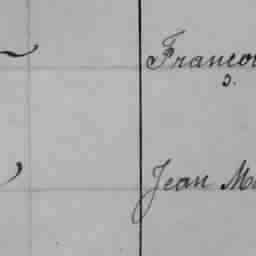 Francoi
s.
Jean Ma